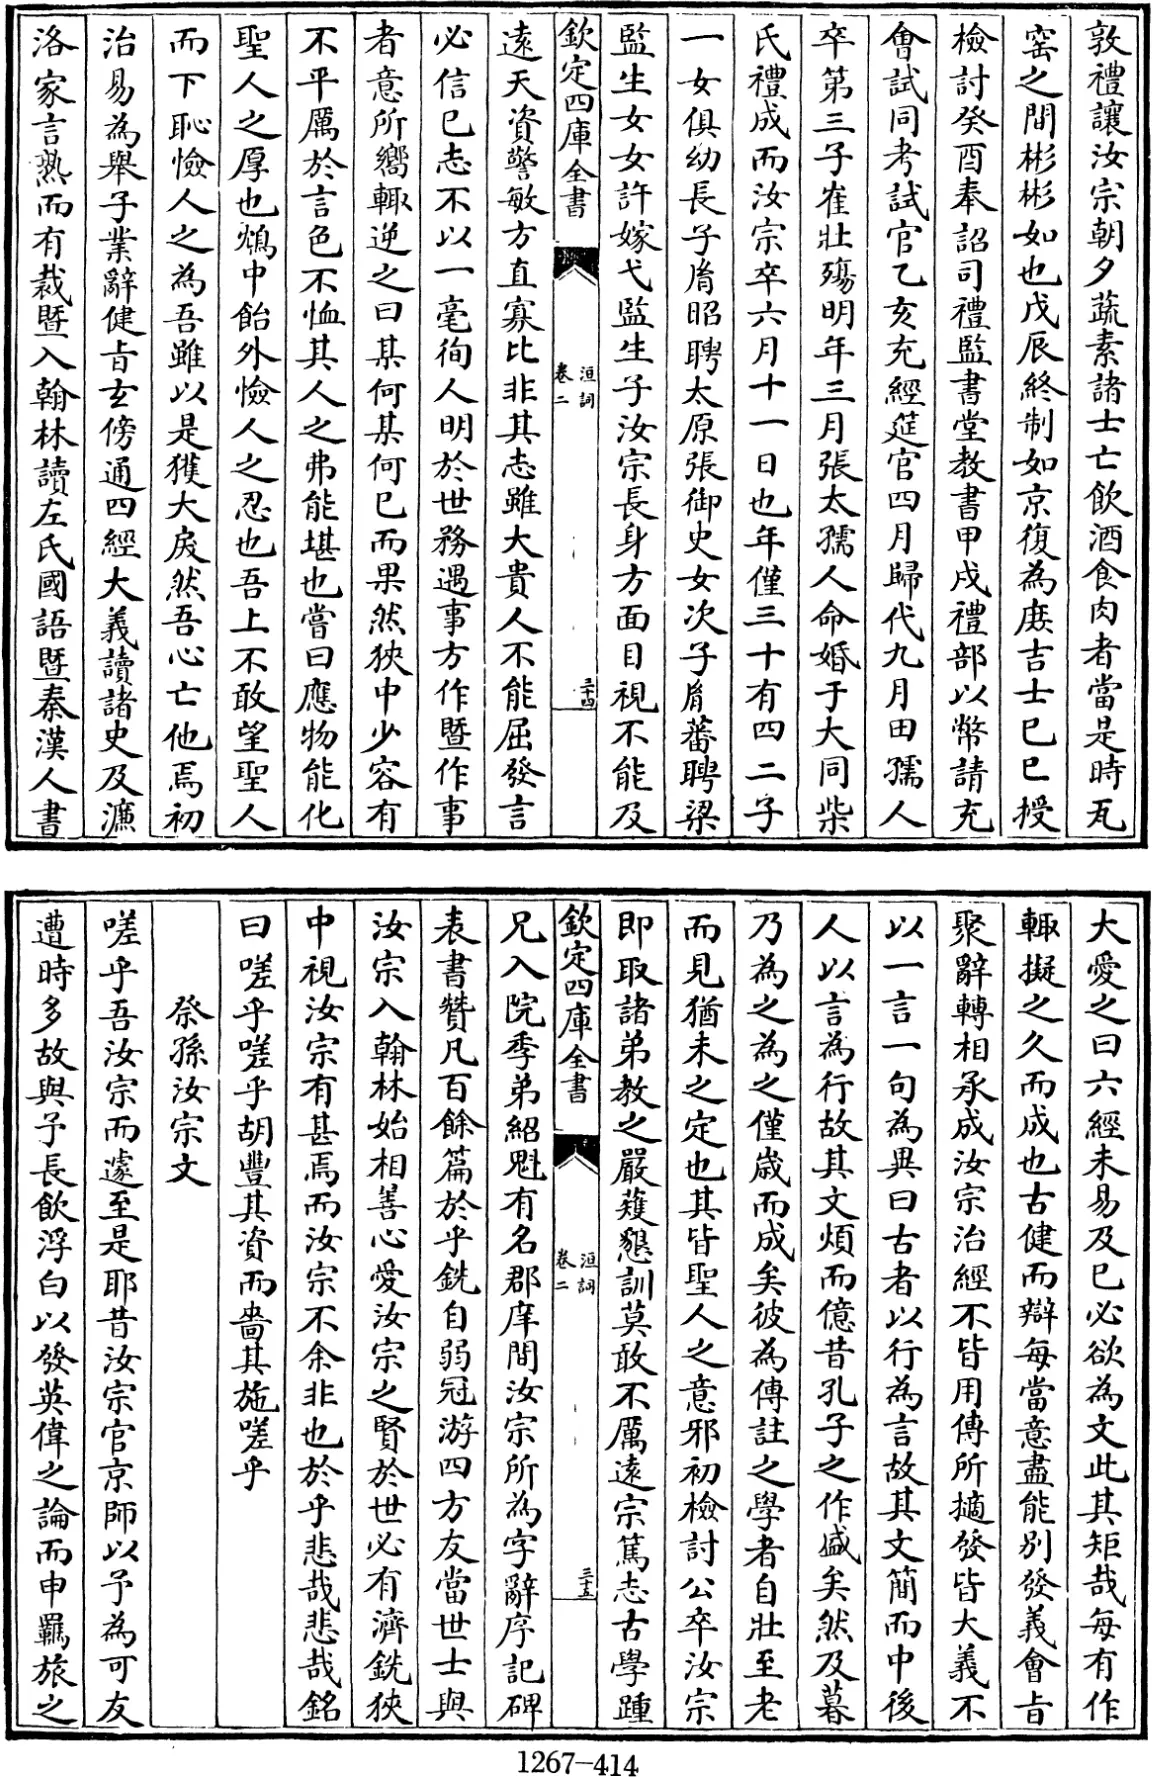 敦禮讓汝宗朝夕蔬素諸士亡飲酒食肉者當是時瓦
窑之間彬彬如也戊辰終制如京復為庻吉士巳巳授
檢討癸酉奉詔司禮監書堂教書甲戌禮部以幣請充
會試同考試官乙亥充經筵官四月歸代九月田孺人
卒第三子崔壯殤明年三月張太孺人命婚于大同柴
氏禮成而汝宗卒六月十一日也年僅三十有四二子
一女俱幼長子胤昭聘太原張御史女次子胤蕃聘梁
監生女女許嫁弋監生子汝宗長身方面目視不能及
欽定四庫全書
洹詞
卷二
三十四
遠天資警敏方直寡比非其志雖大貴人不能屈發言
必信巳志不以一毫徇人明於世務遇事方作暨作事
者意所嚮輙逆之曰某何某何巳而果然狹中少容有
不平厲於言色不恤其人之弗能堪也嘗曰應物能化
聖人之厚也鴆中飴外憸人之忍也吾上不敢望聖人
而下恥憸人之為吾雖以是獲大戾然吾心亡他焉初
治易為舉子業辭健旨玄傍通四經大義讀諸史及濂
洛家言熟而有裁暨入翰林讀左氏國語暨秦漢人書
大愛之曰六經未易及巳必欲為文此其矩哉每有作
輙擬之久而成也古健而辯每當意盡能別發義會旨
聚辭轉相承成汝宗治經不皆用傳所擿發皆大義不
以一言一句為異曰古者以行為言故其文簡而中後
人以言為行故其文煩而億昔孔子之作盛矣然及暮
乃為之為之僅歲而成矣彼為傳註之學者自壯至老
而見猶未之定也其皆聖人之意邪初檢討公卒汝宗
即取諸弟教之嚴䕶懇訓莫敢不厲遠宗篤志古學踵
欽定四庫全書
洹詞
卷二
三十五
兄入院季弟紹魁有名郡庠間汝宗所為字辭序記碑
表書贊凡百餘篇於乎銑自弱冠游四方友當世士與
汝宗入翰林始相善心愛汝宗之賢於世必有濟銑狹
中視汝宗有甚焉而汝宗不余非也於乎悲哉悲哉銘
曰嗟乎嗟乎胡豐其資而嗇其施嗟乎
祭孫汝宗文
嗟乎吾汝宗而遽至是耶昔汝宗官京師以予為可友
遭時多故與予長飲浮白以發英偉之論而申羈旅之
1267-414